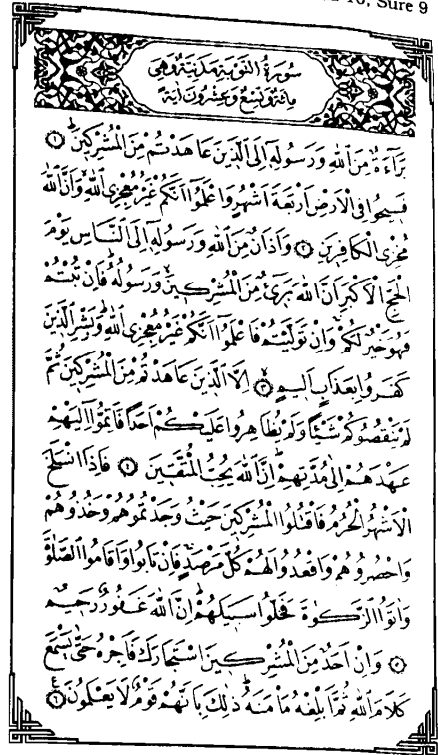 10, Sure 9
سُورَةُ التَّوْبَةِ مَدَنِيَّةٌ وَهِيَ
مِائَةٌ وَتِسْعٌ وَعِشْرُونَ اٰيَةً
بَرَٓاءَةٌ مِنَ اللّٰهِ وَرَسُولِهٖٓ اِلَى الَّذٖينَ عَاهَدْتُمْ مِنَ الْمُشْرِكٖينَ ﴿١﴾
فَسٖيحُوا فِي الْاَرْضِ اَرْبَعَةَ اَشْهُرٍ وَاعْلَمُٓوا اَنَّكُمْ غَيْرُ مُعْجِزِي اللّٰهِ وَاَنَّ اللّٰهَ
مُخْزِي الْكَافِرٖينَ ﴿٢﴾ وَاَذَانٌ مِنَ اللّٰهِ وَرَسُولِهٖٓ اِلَى النَّاسِ يَوْمَ
الْحَجِّ الْاَكْبَرِ اَنَّ اللّٰهَ بَرٖٓيءٌ مِنَ الْمُشْرِكٖينَ وَرَسُولُهُ فَاِنْ تُبْتُمْ
فَهُوَ خَيْرٌ لَكُمْ وَاِنْ تَوَلَّيْتُمْ فَاعْلَمُٓوا اَنَّكُمْ غَيْرُ مُعْجِزِي اللّٰهِ وَبَشِّرِ الَّذٖينَ
كَفَرُوا بِعَذَابٍ اَلٖيمٍ ﴿٣﴾ اِلَّا الَّذٖينَ عَاهَدْتُمْ مِنَ الْمُشْرِكٖينَ ثُمَّ
لَمْ يَنْقُصُوكُمْ شَيْـًٔا وَلَمْ يُظَاهِرُوا عَلَيْكُمْ اَحَدًا فَاَتِمُّٓوا اِلَيْهِمْ
عَهْدَهُمْ اِلٰى مُدَّتِهِمْ اِنَّ اللّٰهَ يُحِبُّ الْمُتَّقٖينَ ﴿٤﴾ فَاِذَا انْسَلَخَ
الْاَشْهُرُ الْحُرُمُ فَاقْتُلُوا الْمُشْرِكٖينَ حَيْثُ وَجَدْتُمُوهُمْ وَخُذُوهُمْ
وَاحْصُرُوهُمْ وَاقْعُدُوا لَهُمْ كُلَّ مَرْصَدٍ فَاِنْ تَابُوا وَاَقَامُوا الصَّلٰوةَ
وَاٰتَوُا الزَّكٰوةَ فَخَلُّوا سَبٖيلَهُمْ اِنَّ اللّٰهَ غَفُورٌ رَحٖيمٌ
﴿٥﴾ وَاِنْ اَحَدٌ مِنَ الْمُشْرِكٖينَ اسْتَجَارَكَ فَاَجِرْهُ حَتّٰى يَسْمَعَ
كَلَامَ اللّٰهِ ثُمَّ اَبْلِغْهُ مَاْمَنَهُ ذٰلِكَ بِاَنَّهُمْ قَوْمٌ لَا يَعْلَمُونَ ﴿٦﴾